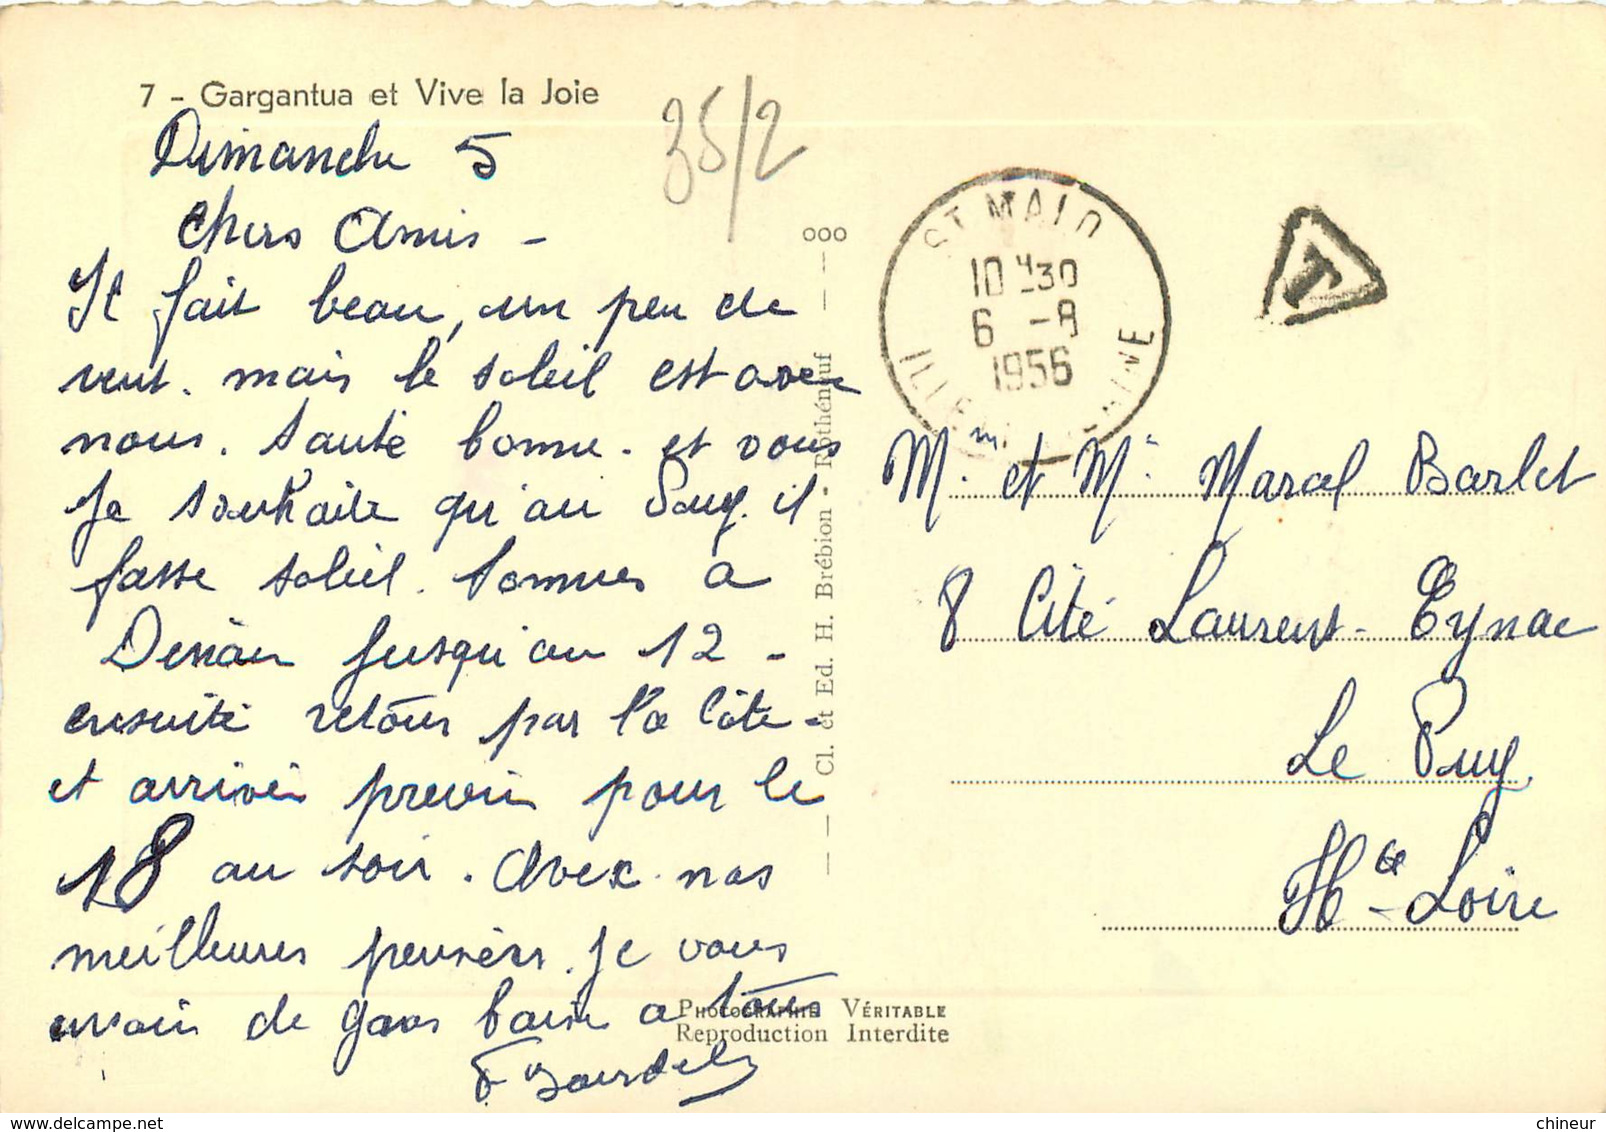 7 - Gargantua et Vive la Joie
35/2
Dimanche 5
Chers Amis -
Il fait beau, un peu de
vent. mais le soleil est avec
nous. Santé bonne. et vous
Je souhaite qu'au Puy. il
fasse soleil. Sommes a
Dinan jusqu'au 12 -
ensuite retour par la Côte -
et arrivée prevu pour le
18 au soir. Avec nos
meilleures pensées. Je vous
envoie de gros baisers a tous
F. Bourdel
— Cl. et Ed. H. Brébion - Rothéneuf — —
000
ST MALO
10 H 30
6 -8
1956
ILLE ET VILAINE
T
Mr. et Me Marcel Barlet
8 Cité Laurent-Eynac
Le Puy
Hte-Loire
Photographie Véritable
Reproduction Interdite
chineur